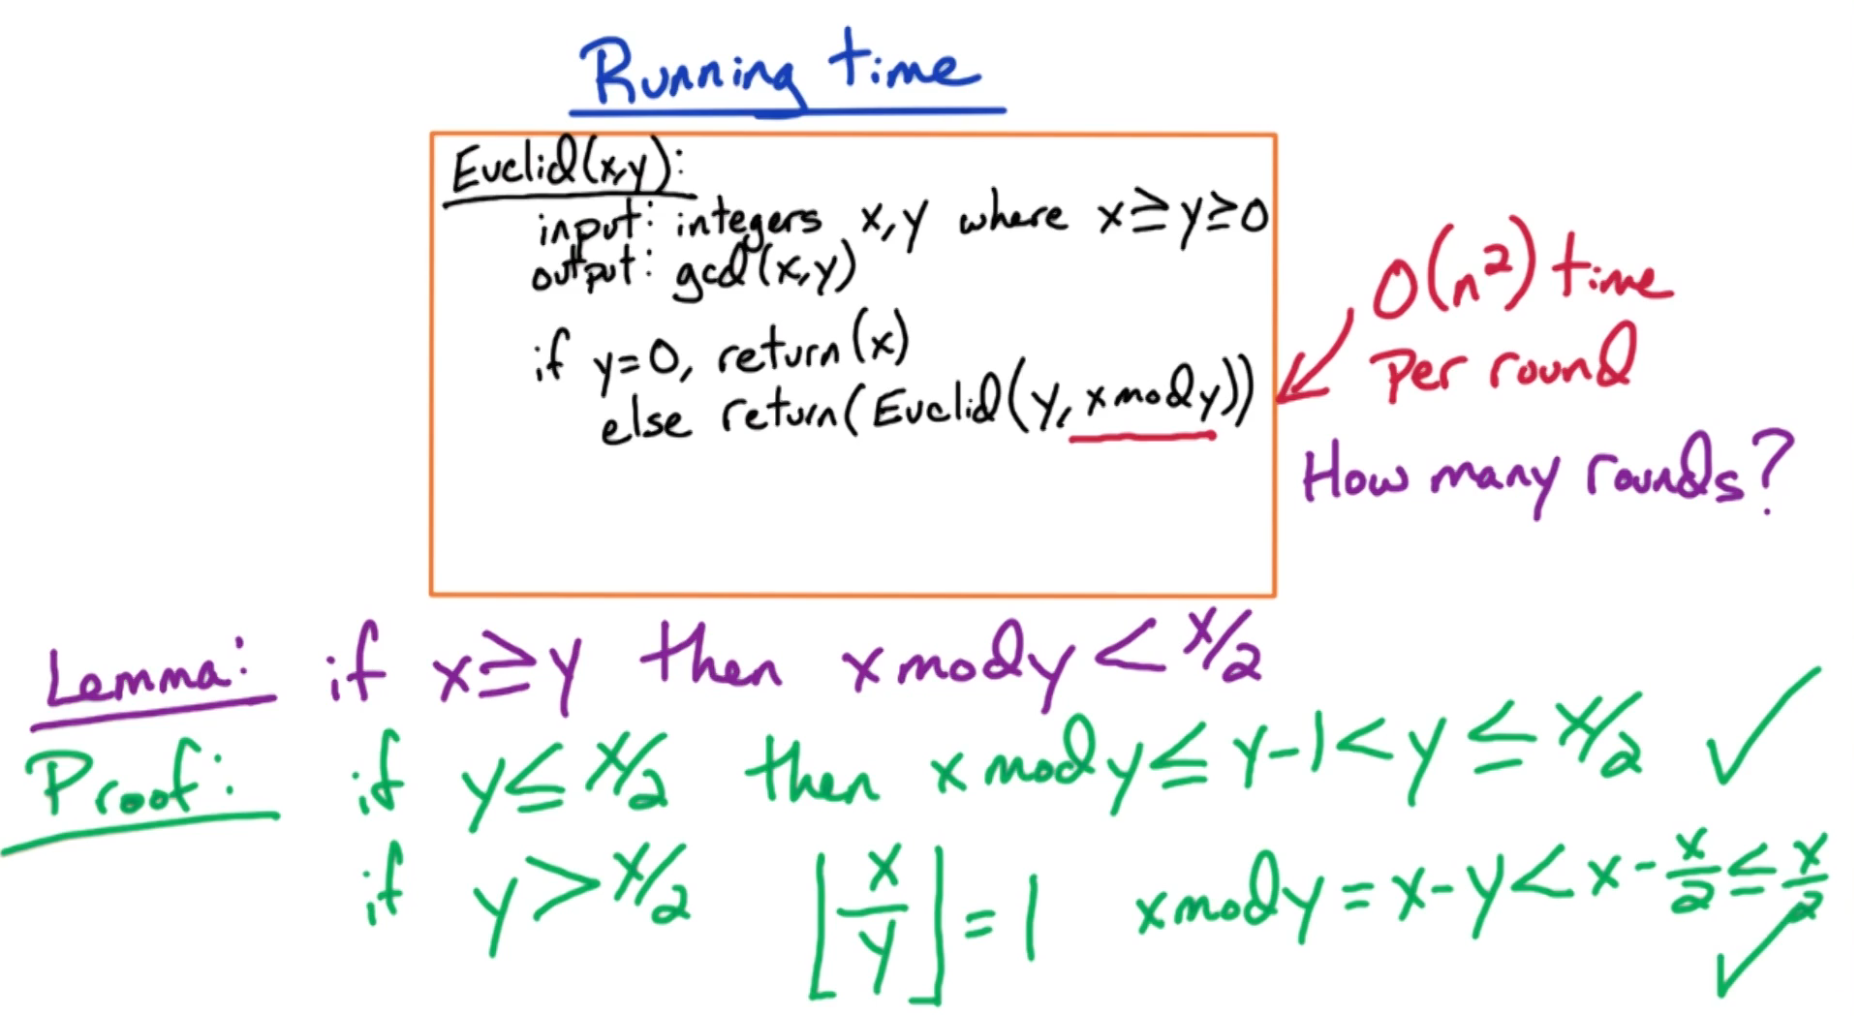 Running time
Euclid(x,y):
input: integers x,y where x≥y≥0
output: gcd(x,y)
if y=0, return(x)
else return(Euclid(y, x mod y))
O(n²) time
per round
How many rounds?
Lemma: if x≥y then x mod y < x/2
Proof: if y≤x/2 then x mod y ≤ y-1 < y ≤ x/2 ✓
if y>x/2 ⌊x/y⌋ = 1 x mod y = x-y < x - x/2 ≤ x/2 ✓